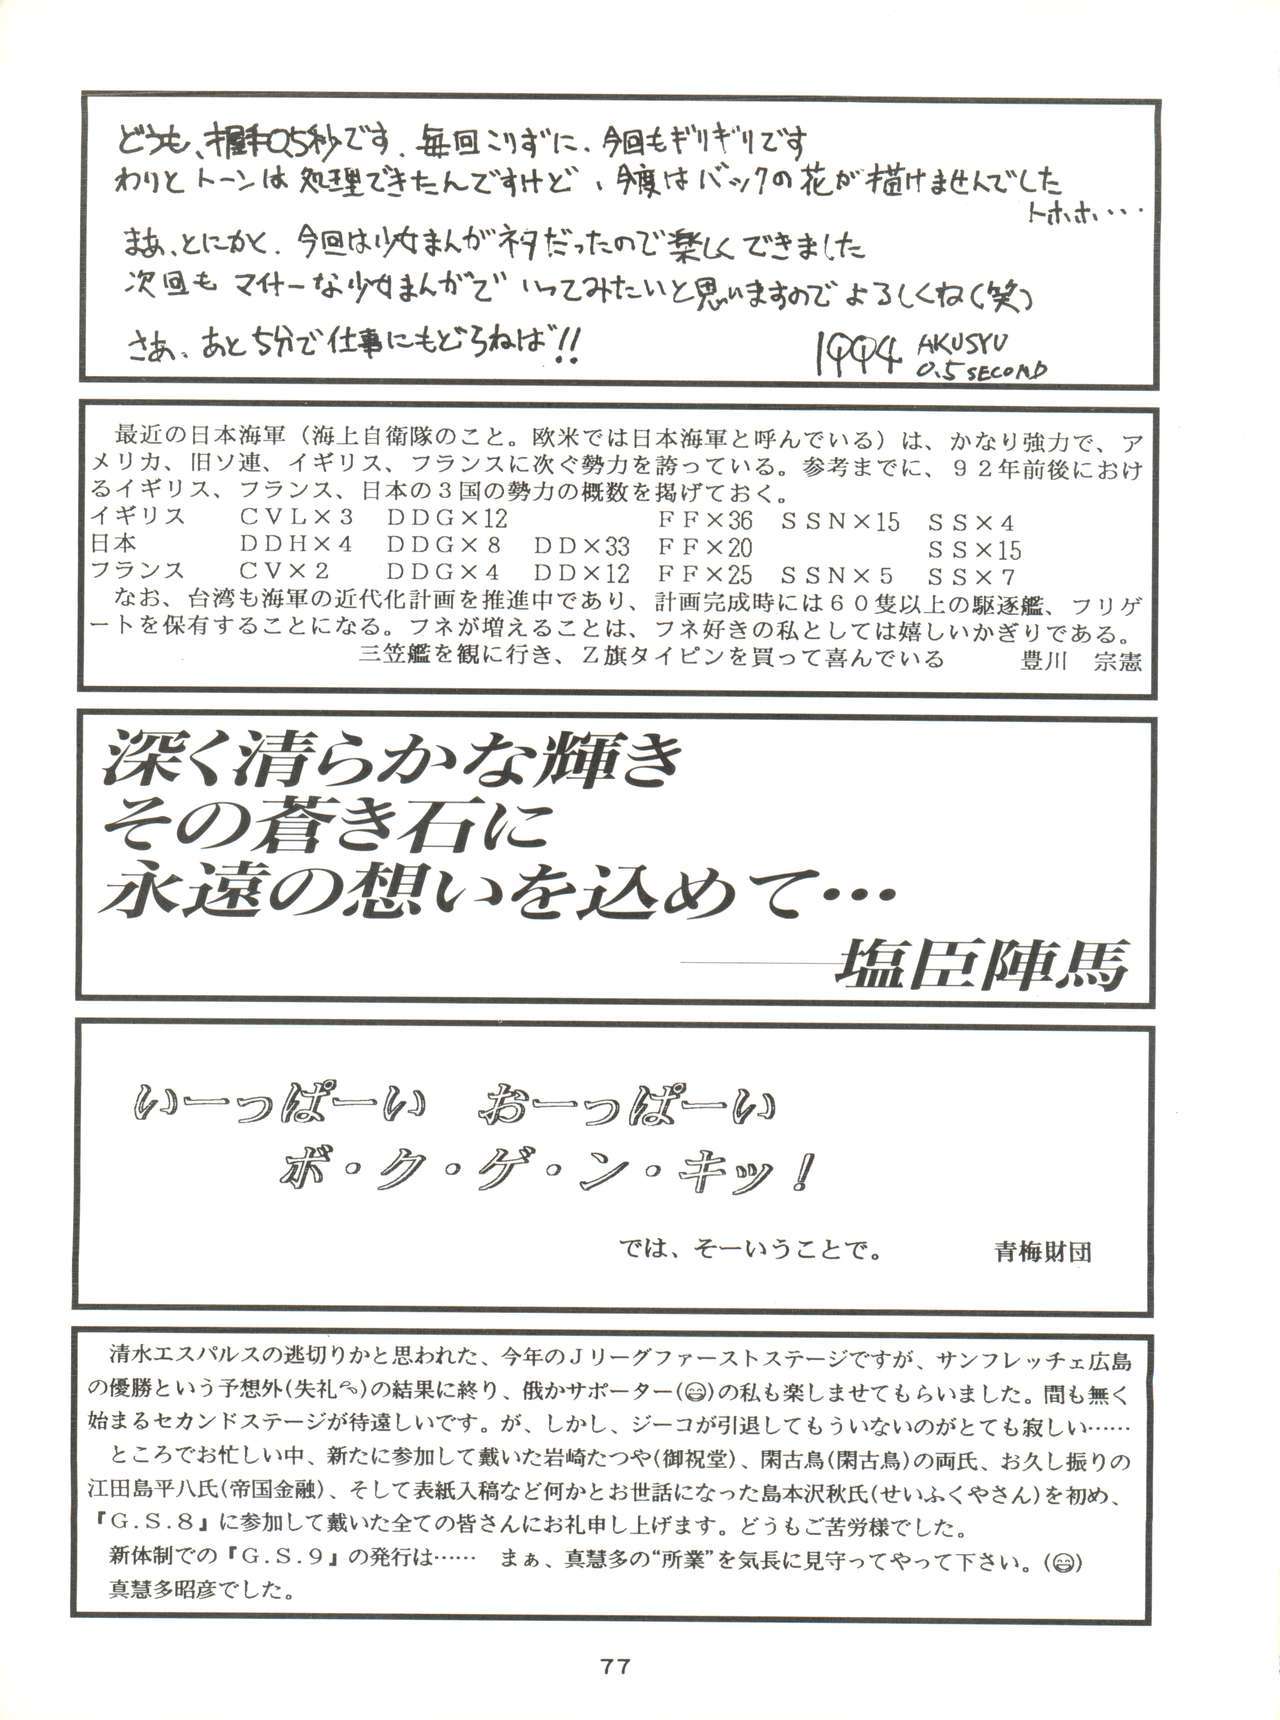 どうも、握手0.5秒です。毎回こりずに、今回もギリギリです
わりとトーンは処理できたんですけど、今度はバックの花が描けませんでした
トホホ・・・
まあ、とにかく、今回は少女まんがネタだったので楽しくできました
次回も マイナーな少女まんがで いってみたいと思いますのでよろしくね(笑)
さあ、あと5分で仕事にもどらねば!!
1994 AKUSYU
0.5 SECOND
最近の日本海軍（海上自衛隊のこと。欧米では日本海軍と呼んでいる）は、かなり強力で、ア
メリカ、旧ソ連、イギリス、フランスに次ぐ勢力を誇っている。参考までに、９２年前後におけ
るイギリス、フランス、日本の３国の勢力の概数を掲げておく。
イギリス ＣＶＬ×３ ＤＤＧ×12 ＦＦ×36 ＳＳＮ×15 ＳＳ×４
日本 ＤＤＨ×４ ＤＤＧ×８ ＤＤ×33 ＦＦ×20 ＳＳ×15
フランス ＣＶ×２ ＤＤＧ×４ ＤＤ×12 ＦＦ×25 ＳＳＮ×５ ＳＳ×７
なお、台湾も海軍の近代化計画を推進中であり、計画完成時には６０隻以上の駆逐艦、フリゲ
ートを保有することになる。フネが増えることは、フネ好きの私としては嬉しいかぎりである。
三笠艦を観に行き、Ｚ旗タイピンを買って喜んでいる 豊川 宗憲
深く清らかな輝き
その蒼き石に
永遠の想いを込めて…
――塩臣陣馬
いーっぱーい おーっぱーい
ボ・ク・ゲ・ン・キッ！
では、そーいうことで。 青梅財団
清水エスパルスの逃切りかと思われた、今年のＪリーグファーストステージですが、サンフレッチェ広島
の優勝という予想外(失礼)の結果に終り、俄かサポーター(😄)の私も楽しませてもらいました。間も無く
始まるセカンドステージが待遠しいです。が、しかし、ジーコが引退してもういないのがとても寂しい……
ところでお忙しい中、新たに参加して戴いた岩崎たつや(御祝堂)、閑古鳥(閑古鳥)の両氏、お久し振りの
江田島平八氏(帝国金融)、そして表紙入稿など何かとお世話になった島本沢秋氏(せいふくやさん)を初め、
『Ｇ.Ｓ.８』に参加して戴いた全ての皆さんにお礼申し上げます。どうもご苦労様でした。
新体制での『Ｇ.Ｓ.９』の発行は…… まぁ、真慧多の“所業”を気長に見守ってやって下さい。(😄)
真慧多昭彦でした。
77